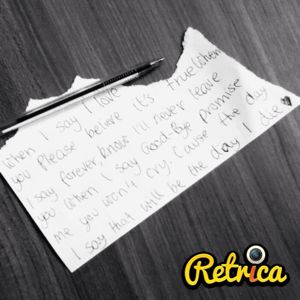 When I say I love
you Please believe it's true When
I say forever Know I'll never leave
you When I say Good-Bye Promise
me you won't cry, Cause the day
I say that will be the day I die
Retrica